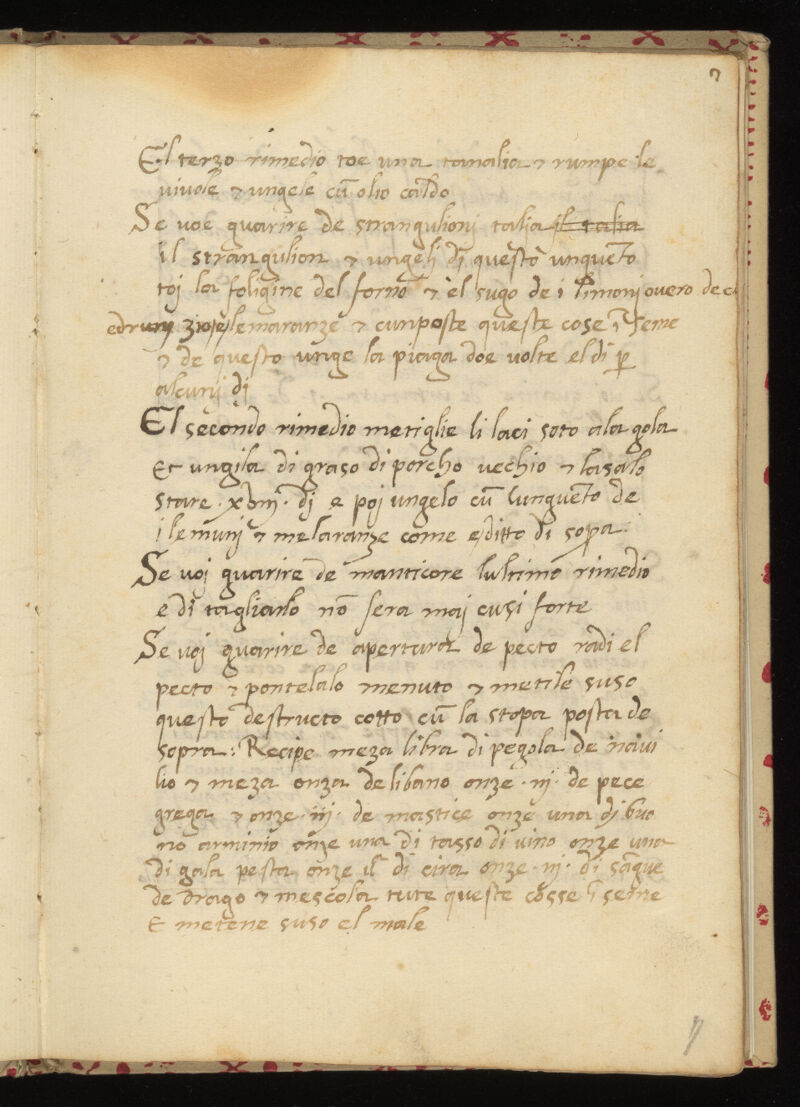 7
El terzo rimedio toe una tanalia & rumpe le
vivole & ungele cū olio caldo
Se voe guarire de strangulionj talia il talia
il strangulion & ungelj dj questo unguēto
toj la foligine del forno & el sugo de i limonj overo de c
lemaranze & cunposte queste cose ī seme
& de questo unge la piaga doe volte el dì p
alcunj dj
El secondo rimedio metiglie li laci soto ala gola
Et ungila di graso di porcho vechio & lasalo
stare dj e poj ungelo cū lunguēto de
i lemunj & melaranze come e ditto di sopra
Se voj guarire de manticore lultimo rimedio
e di tagliarlo nō sera maj cusi forte
Se voj guarire de apertura de pecto radi el
pecto & pontelalo menuto & metile suso
questo destructo cotto cū la stopa posta de
sopra: Recipe meza libra di pegola de navi
lio & meza onza de libano onze .iij. de pece
grega & onze .iij. de mastice onze una dj buo
no arminio onze una di tasso di vino onze una
di gala pesta onze di cira onze .iij. di sāgue
de drago & mescola tute queste cosse ī seme
E metene suso el male